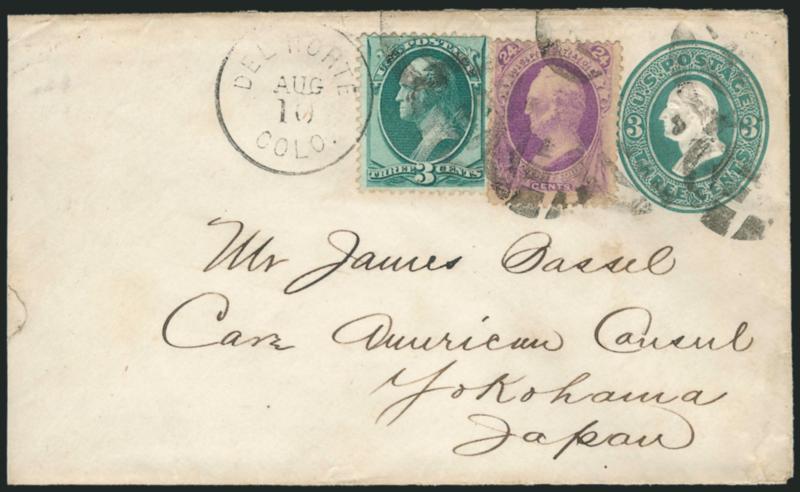 DEL NORTE
AUG
10
COLO.
U.S. POSTAGE
THREE 3 CENTS
24 24
CENTS
U.S. POSTAGE
3 3
THREE CENTS
Mr James Bassel
Care American Consul
Yokohama
Japan